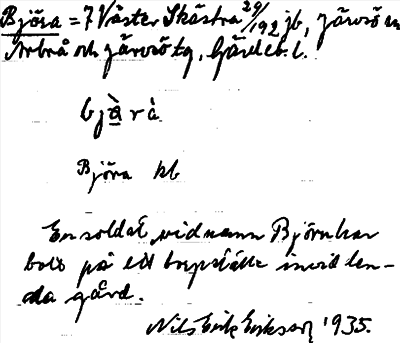 Björa = 7 Väster Skästra 29/192 jb, Järvsö sn
Arbrå och Järvsö tg, Gävleb. l.
bjɑ̀ rȧ
Björa kb
En soldat vid namn Björn har
bott på ett torpställe invid den-
da gård.
Nils Erik Eriksson 1935.